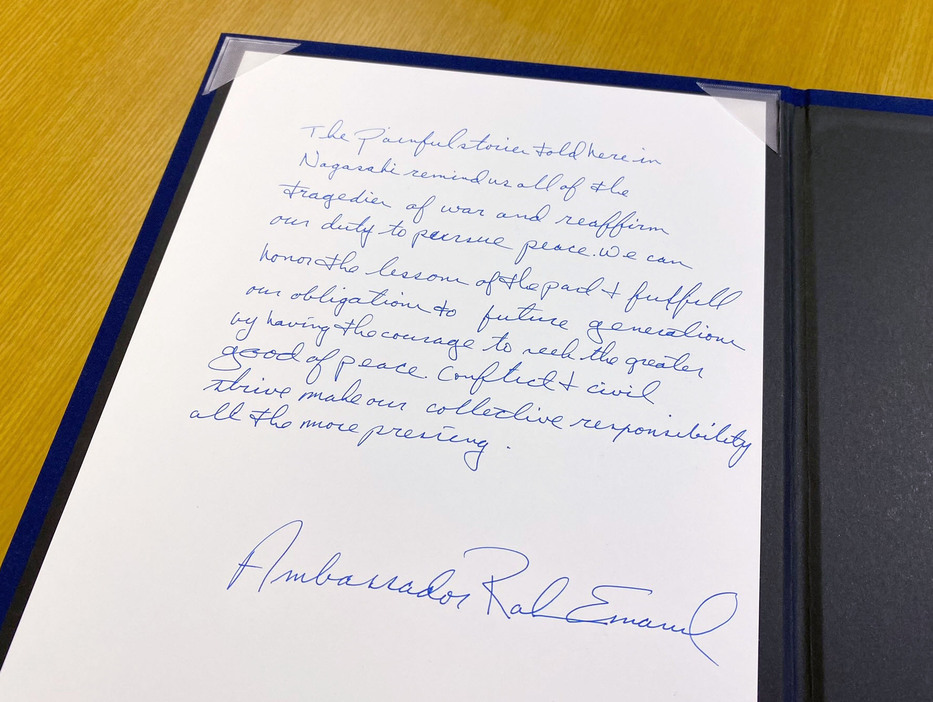 The Painful stories told here in
Nagasaki remind us all of the
tragedies of war and reaffirm
our duty to pursue peace. We can
honor the lessons of the past + fulfill
our obligations to future generations
by having the courage to seek the greater
good of peace. Conflict + civil
strive make our collective responsibility
all the more pressing.
Ambassador Rahm Emanuel